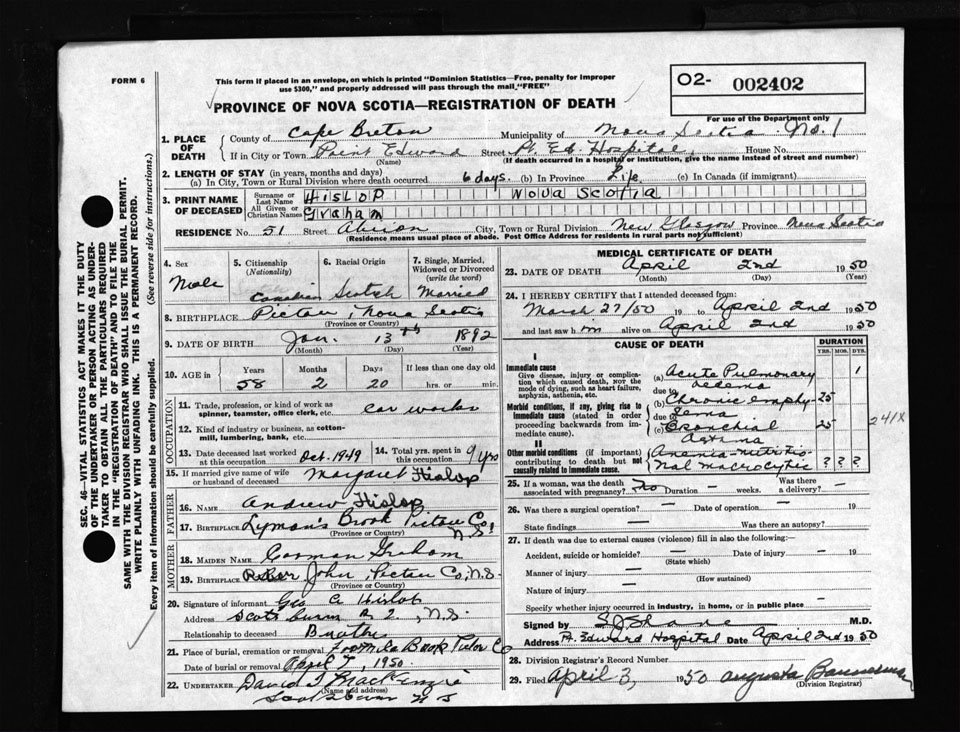 FORM 6
This form if placed in an envelope, on which is printed "Dominion Statistics—Free, penalty for improper
use $300," and properly addressed will pass through the mail "FREE"
O2- 002402
For use of the Department only
PROVINCE OF NOVA SCOTIA—REGISTRATION OF DEATH
SEC. 46—VITAL STATISTICS ACT MAKES IT THE DUTY
OF THE UNDERTAKER OR PERSON ACTING AS UNDER-
TAKER TO OBTAIN ALL THE PARTICULARS REQUIRED
IN THE "REGISTRATION OF DEATH" AND TO FILE THE
SAME WITH THE DIVISION REGISTRAR WHO SHALL ISSUE THE BURIAL PERMIT.
WRITE PLAINLY WITH UNFADING INK. THIS IS A PERMANENT RECORD.
Every item of information should be carefully supplied. (See reverse side for instructions.)
1. PLACE OF DEATH
County of Cape Breton Municipality of Nova Scotia No. 1
If in City or Town Point Edward Street Pt. Ed. Hospital House No.
(Name) (If death occurred in a hospital or institution, give the name instead of street and number)
2. LENGTH OF STAY (in years, months and days)
(a) In City, Town or Rural Division where death occurred 6 days. (b) In Province Life (c) In Canada (if immigrant)
3. PRINT NAME OF DECEASED
Surname or Last Name HISLOP NOVA SCOTIA
All Given or Christian Names Graham
RESIDENCE No. 51 Street Abrion City, Town or Rural Division New Glasgow Province Nova Scotia
(Residence means usual place of abode. Post Office Address for residents in rural parts not sufficient)
4. Sex Male
5. Citizenship (Nationality) Canadian
6. Racial Origin Scotch
7. Single, Married, Widowed or Divorced (write the word) Married
8. BIRTHPLACE Pictou, Nova Scotia
(Province or Country)
9. DATE OF BIRTH Jan. 13th 1892
(Month) (Day) (Year)
10. AGE in Years 58 Months 2 Days 20 If less than one day old hrs. or min.
OCCUPATION
11. Trade, profession or kind of work as spinner, teamster, office clerk, etc. car works
12. Kind of industry or business, as cotton-mill, lumbering, bank, etc.
13. Date deceased last worked at this occupation Oct. 1949
14. Total yrs. spent in this occupation 9 yrs
15. If married give name of wife or husband of deceased Margaret Hislop
FATHER
16. NAME Andrew Hislop
17. BIRTHPLACE Lyman's Brook Pictou Co, N.S.
(Province or Country)
MOTHER
18. MAIDEN NAME Graham
19. BIRTHPLACE River John, Pictou Co, N.S.
(Province or Country)
20. Signature of informant Geo A Hislop
Address Scotsburn R 2, N.S.
Relationship to deceased Brother
21. Place of burial, cremation or removal Brook Pictou Co
Date of burial or removal April 1950.
22. UNDERTAKER David J MacKenzie
(Name and address)
Scotsburn N S
MEDICAL CERTIFICATE OF DEATH
23. DATE OF DEATH April 2nd 1950
(Month) (Day) (Year)
24. I HEREBY CERTIFY that I attended deceased from:
March 27/50 19 to April 2nd 1950
and last saw him alive on April 2nd 1950
CAUSE OF DEATH DURATION
YRS. MOS. DYS.
I
Immediate cause
Give disease, injury or complication which caused death, NOT the mode of dying, such as heart failure, asphyxia, asthenia, etc.
(a) Acute Pulmonary oedema 1
due to
Morbid conditions, if any, giving rise to immediate cause (stated in order proceeding backwards from immediate cause).
(b) Chronic emphysema 25
due to
(c) Bronchial Astma 25
241X
II
Other morbid conditions (if important) contributing to death but not causally related to immediate cause.
Anemia-nutritional macrocytic ? ? ?
25. If a woman, was the death associated with pregnancy? no Duration — weeks. Was there a delivery? —
26. Was there a surgical operation? — Date of operation — 19
State findings — Was there an autopsy?
27. If death was due to external causes (violence) fill in also the following:
Accident, suicide or homicide? — Date of injury — 19
(State which)
Manner of injury —
(How sustained)
Nature of injury —
Specify whether injury occurred in industry, in home, or in public place —
Signed by M.D.
Address Pt. Edward Hospital Date April 2nd 1950
28. Division Registrar's Record Number
29. Filed April 3, 1950 Augusta
(Division Registrar)